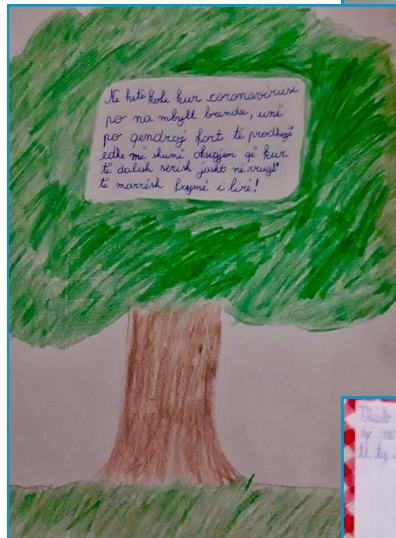 Ne ketë kohë kur coronavirusi
po na mbyll brenda, unë
po qendroj fort të prodhojë
edhe më shumë oksigjen që kur
të dalesh serish jasht në rrugë
të marrësh frymë i lirë!